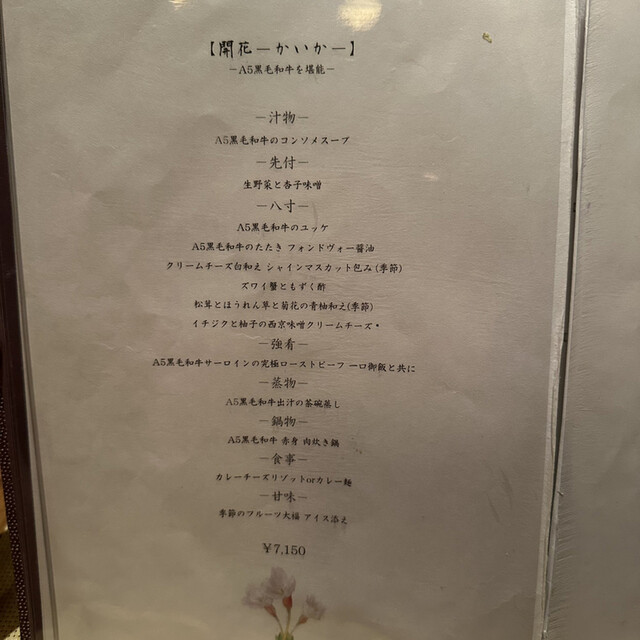 【開花―かいか―】
―A5黒毛和牛を堪能―
―汁物―
A5黒毛和牛のコンソメスープ
―先付―
生野菜と杏子味噌
―八寸―
A5黒毛和牛のユッケ
A5黒毛和牛のたたき フォンドヴォー醤油
クリームチーズ白和え シャインマスカット包み(季節)
ズワイ蟹ともずく酢
松茸とほうれん草と菊花の青柚和え(季節)
イチジクと柚子の西京味噌クリームチーズ*
―強肴―
A5黒毛和牛サーロインの究極ローストビーフ 一口御飯と共に
―蒸物―
A5黒毛和牛出汁の茶碗蒸し
―鍋物―
A5黒毛和牛 赤身 肉炊き鍋
―食事―
カレーチーズリゾットorカレー麺
―甘味―
季節のフルーツ大福 アイス添え
¥7,150